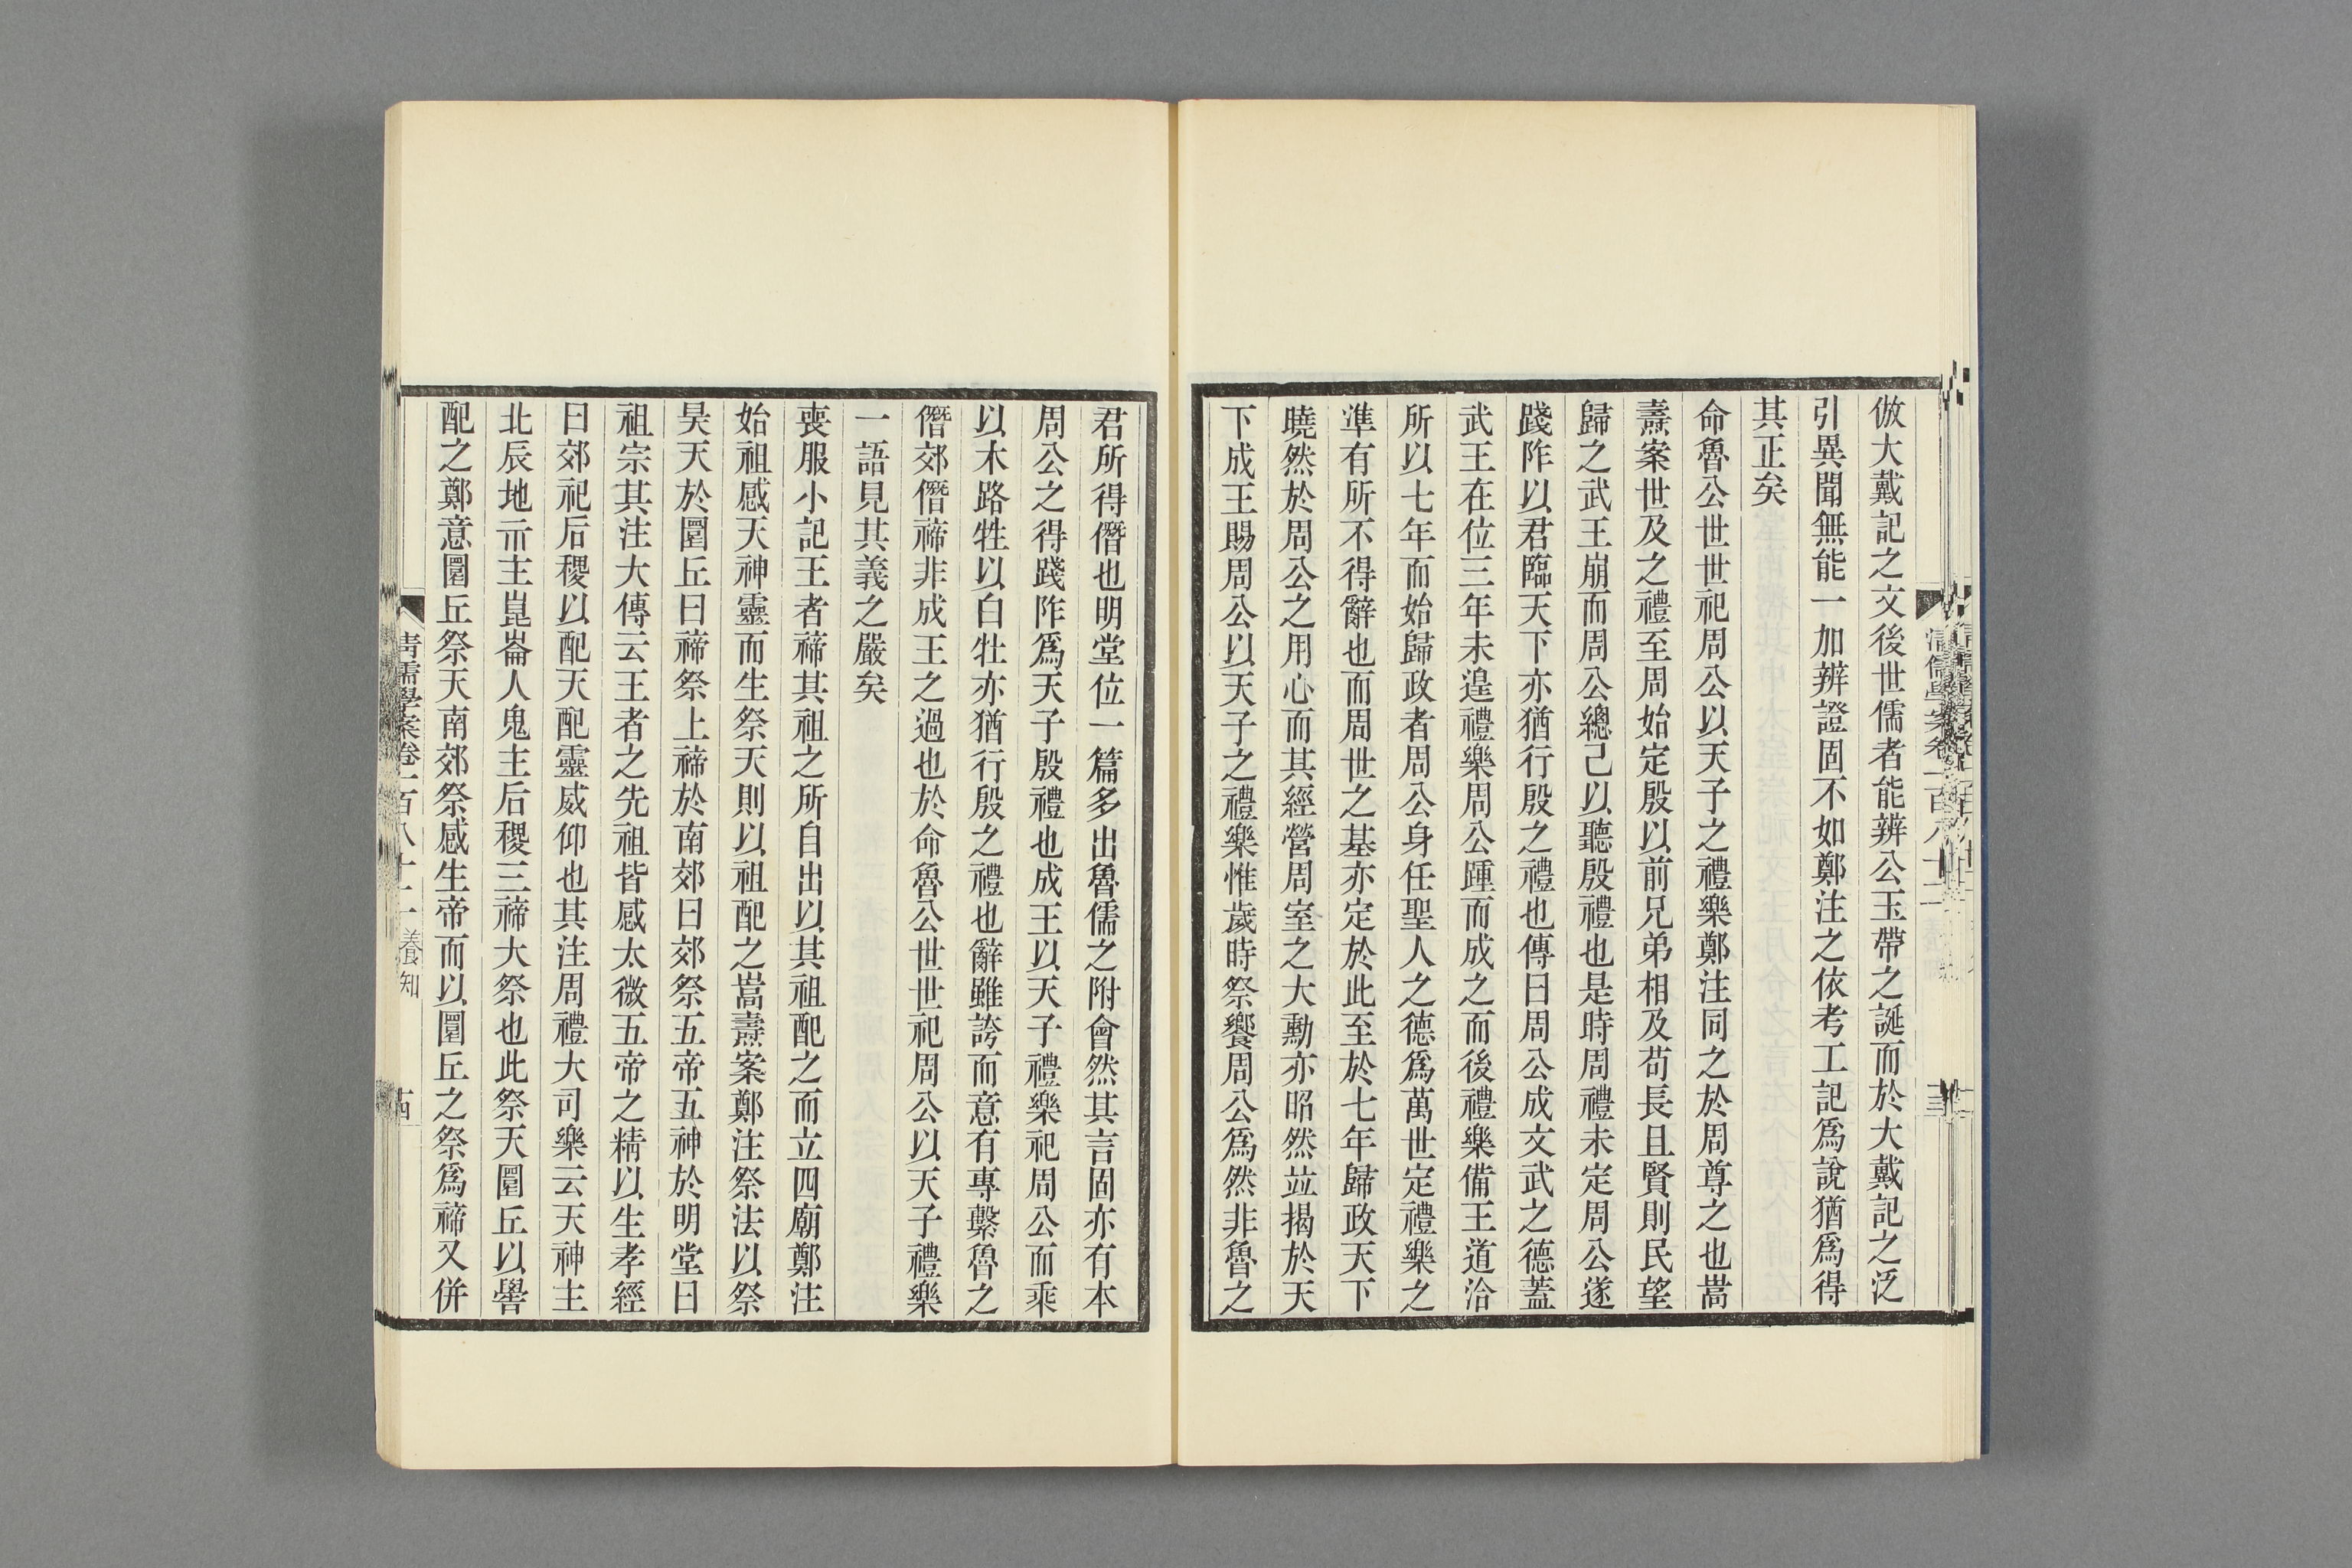 倣大戴記之文後世儒者能辨公玉帶之誕而於大戴記之泛
引異聞無能一加辨證固不如鄭注之依考工記爲說猶爲得
其正矣
命魯公世世祀周公以天子之禮樂鄭注同之於周尊之也嵩
燾案世及之禮至周始定殷以前兄弟相及苟長且賢則民望
歸之武王崩而周公總己以聽殷禮也是時周禮未定周公遂
踐阼以君臨天下亦猶行殷之禮也傳曰周公成文武之德蓋
武王在位三年未遑禮樂周公踵而成之而後禮樂備王道洽
所以七年而始歸政者周公身任聖人之德爲萬世定禮樂之
準有所不得辭也而周世之基亦定於此至於七年歸政天下
曉然於周公之用心而其經營周室之大勳亦昭然竝揭於天
下成王賜周公以天子之禮樂惟歲時祭饗周公爲然非魯之
君所得僭也明堂位一篇多出魯儒之附會然其言固亦有本
周公之得踐阼爲天子殷禮也成王以天子禮樂祀周公而乘
以木路牲以白牡亦猶行殷之禮也辭雖誇而意有專繫魯之
僭郊僭禘非成王之過也於命魯公世世祀周公以天子禮樂
一語見其義之嚴矣
喪服小記王者禘其祖之所自出以其祖配之而立四廟鄭注
始祖感天神靈而生祭天則以祖配之嵩燾案鄭注祭法以祭
昊天於圜丘曰禘祭上禘於南郊曰郊祭五帝五神於明堂曰
祖宗其注大傳云王者之先祖皆感太微五帝之精以生孝經
曰郊祀后稷以配天配靈威仰也其注周禮大司樂云天神主
北辰地示主崑崙人鬼主后稷三禘大祭也此祭天圜丘以嚳
配之鄭意圜丘祭天南郊祭感生帝而以圜丘之祭爲禘又併
清儒學案卷一百八十二 養知